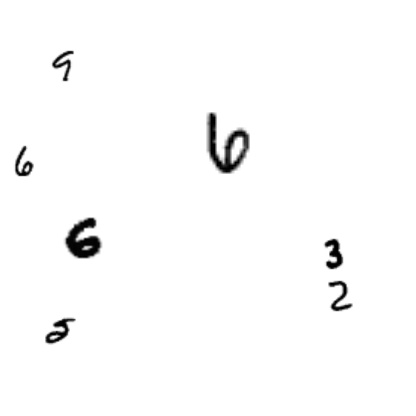 9
6
6
6
3
2
5